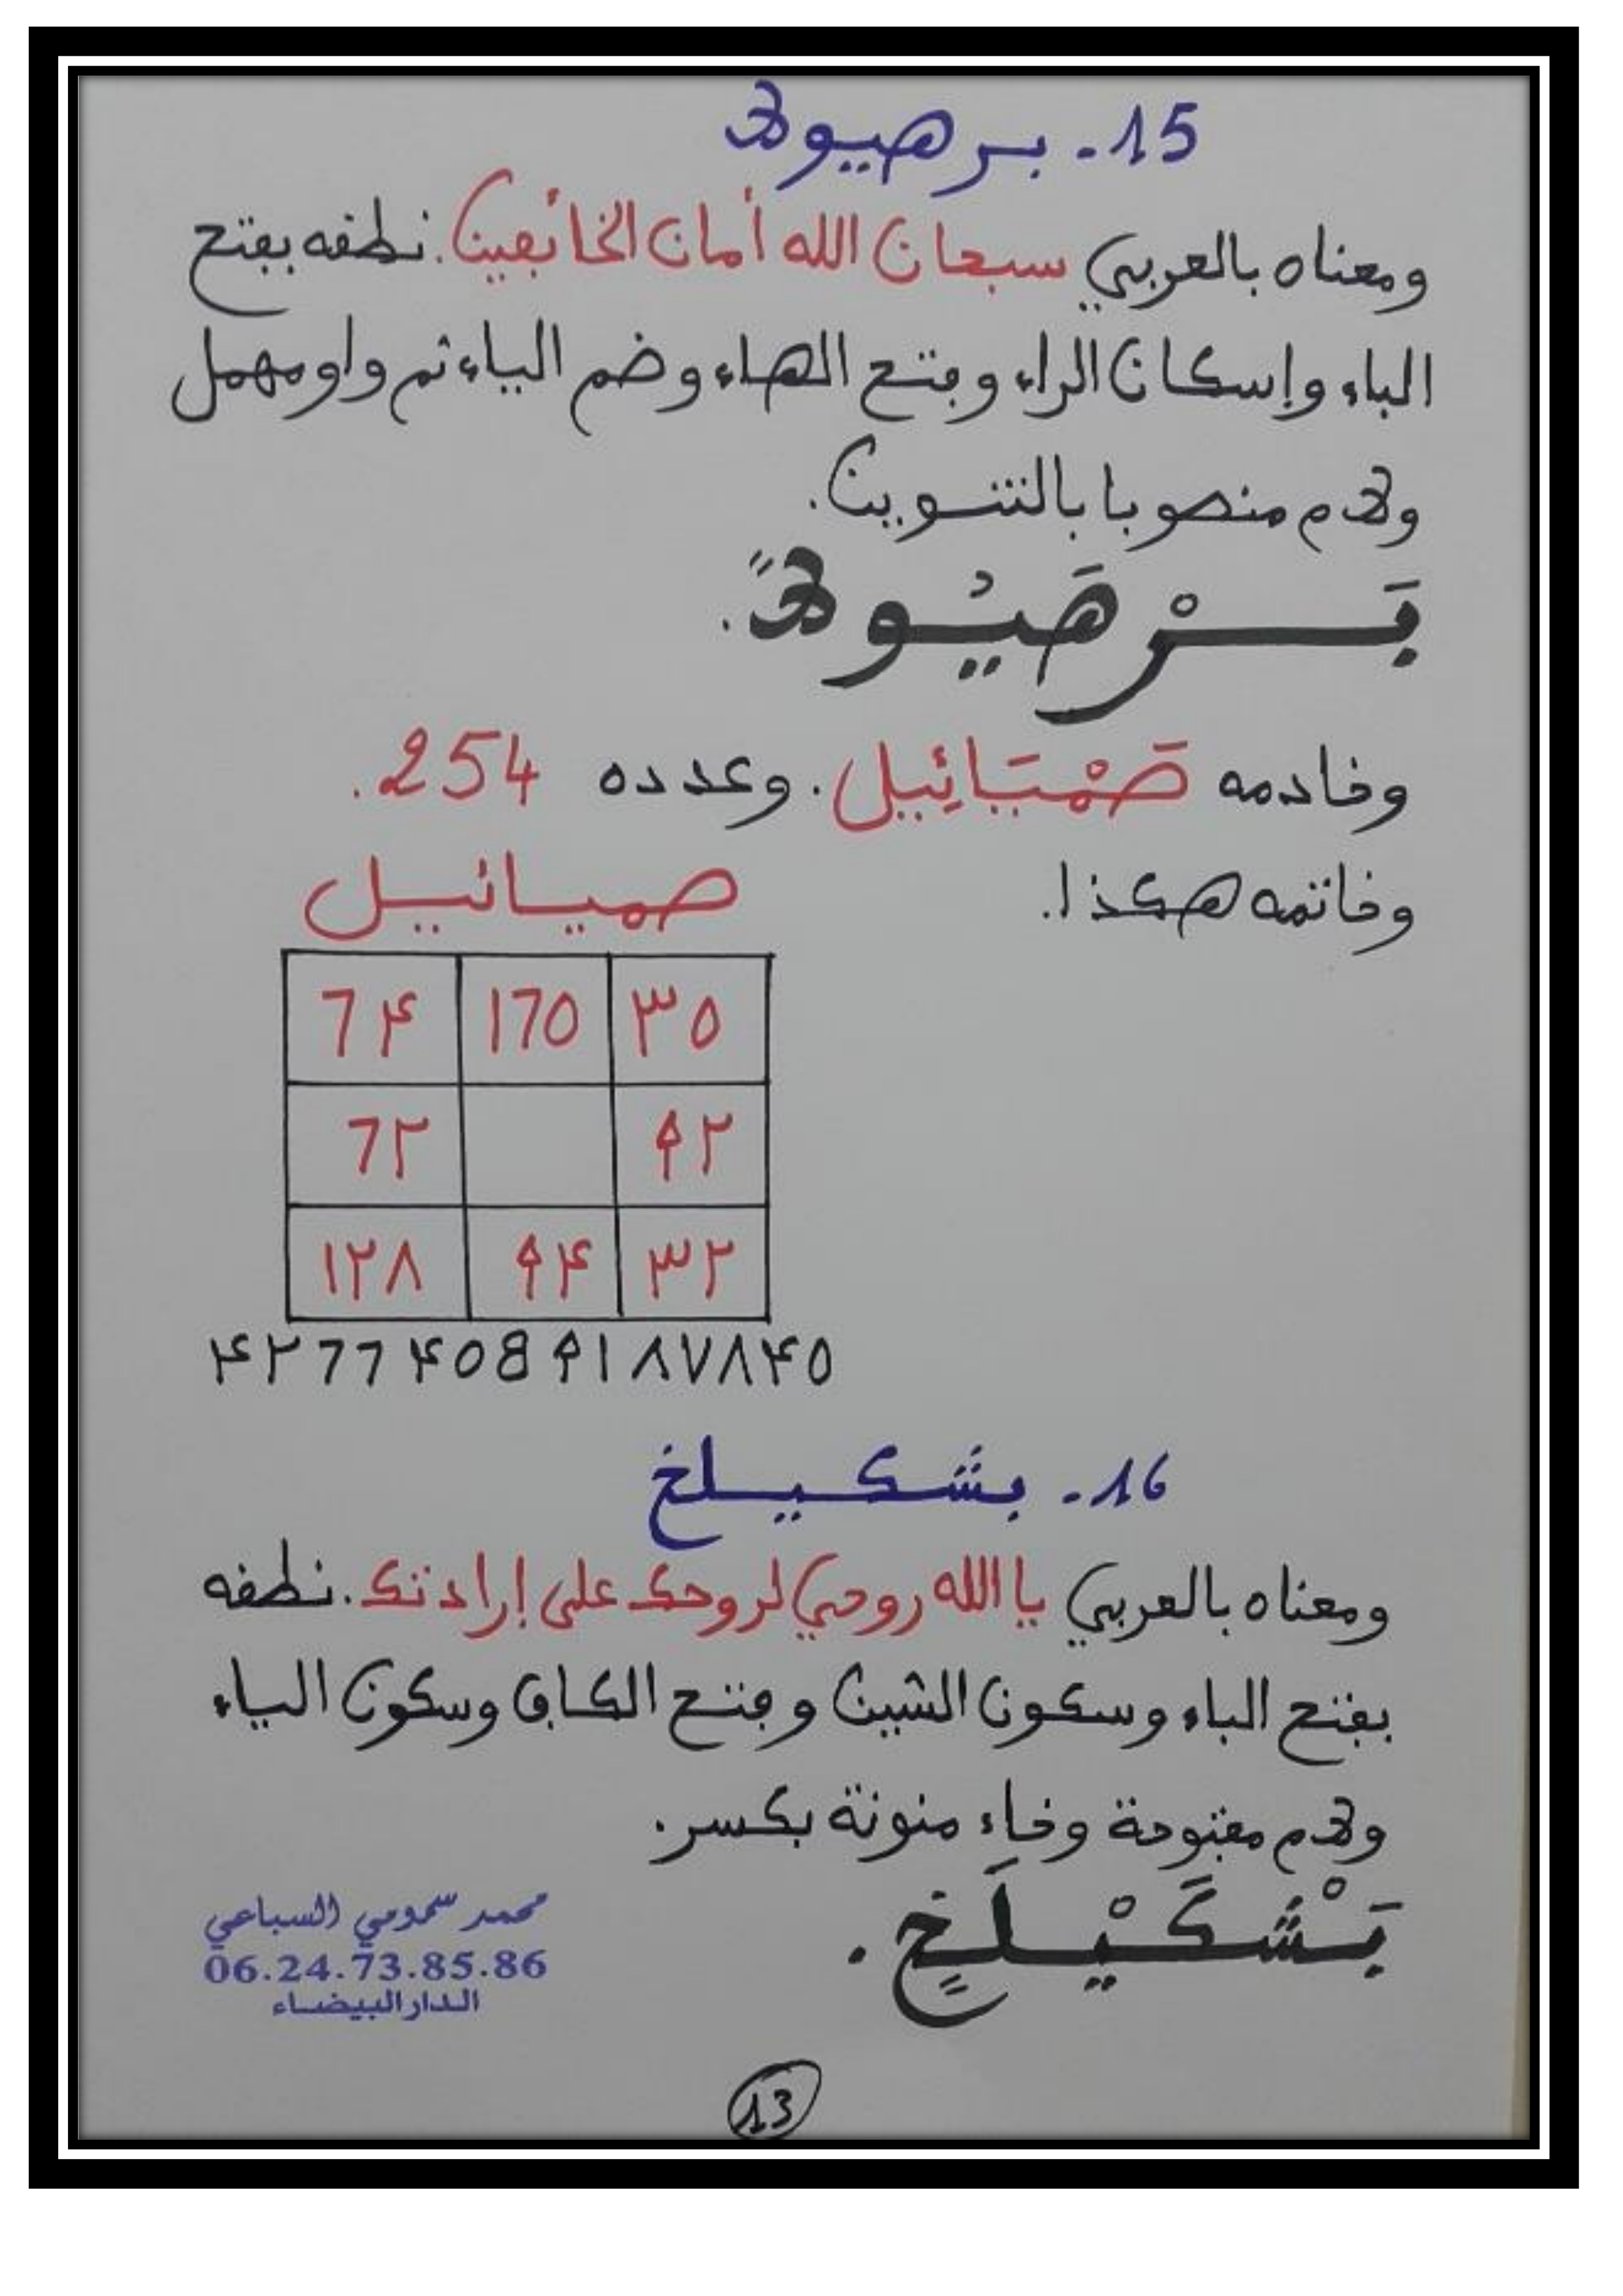 15- برهيولا
ومعناه بالعربي سبحان الله أمان الخائفين. نطقه بفتح
الباء وإسكان الراء وفتح الهاء وضم الياء ثم واو مهمل
ولام منصوبا بالتنوين.
بَرْهَيُولاً.
وخادمه صَمْيَائِيل. وعدده 254.
وخاتمه هكذا.
صميائيل
7۴ 170 ۳0
7۲ ۹۲
۱۲۸ ۹۴ ۳۲
۴۲77۴089۱۸۷۸۴0
16- بشكيلخ
ومعناه بالعربي يا الله روحي لروحك على إرادتك. نطقه
بفتح الباء وسكون الشين وفتح الكاف وسكون الياء
ولام مفتوحة وخاء منونة بكسر.
بَشْكَيْلَخٍ.
محمد سمومي السباعي
06.24.73.85.86
الدار البيضاء
13